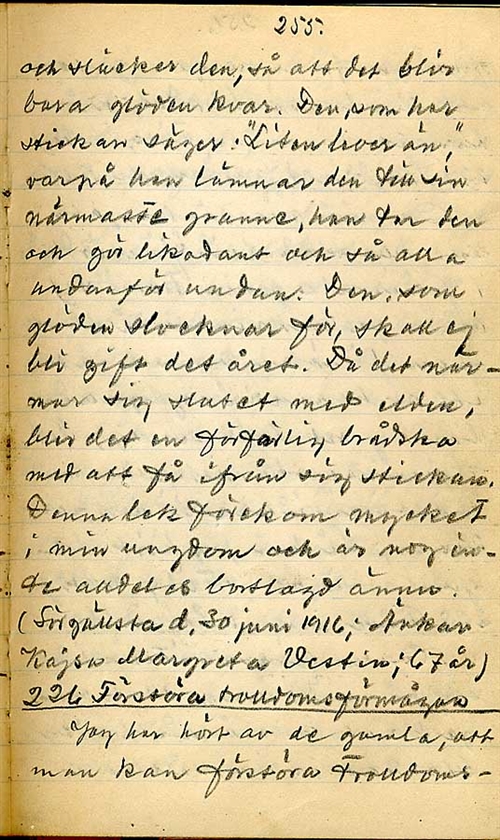 255.
och släcker den, så att det blir
bara glöden kvar. Den, som har
stickan säger: "Liten lever än,"
varpå han lämnar den till sin
närmaste granne, han tar den
och gör likadant och så alla
undanför undan. Den, som
glöden slocknar för, skall ej
bli gift det året. Då det när-
mar sig slutet med elden,
blir det en förfärlig brådska
med att få ifrån sig stickan.
Denna lek förekom mycket
i min ungdom och är nog in-
te alldeles bortlagd ännu.
(Sörgällsta d. 30 juni 1916; Änkan
Kajsa Margreta Vestin; 67 år)
226 Förstöra trolldomsförmågan
Jag har hört av de gamla, att
man kan förstöra trolldoms-